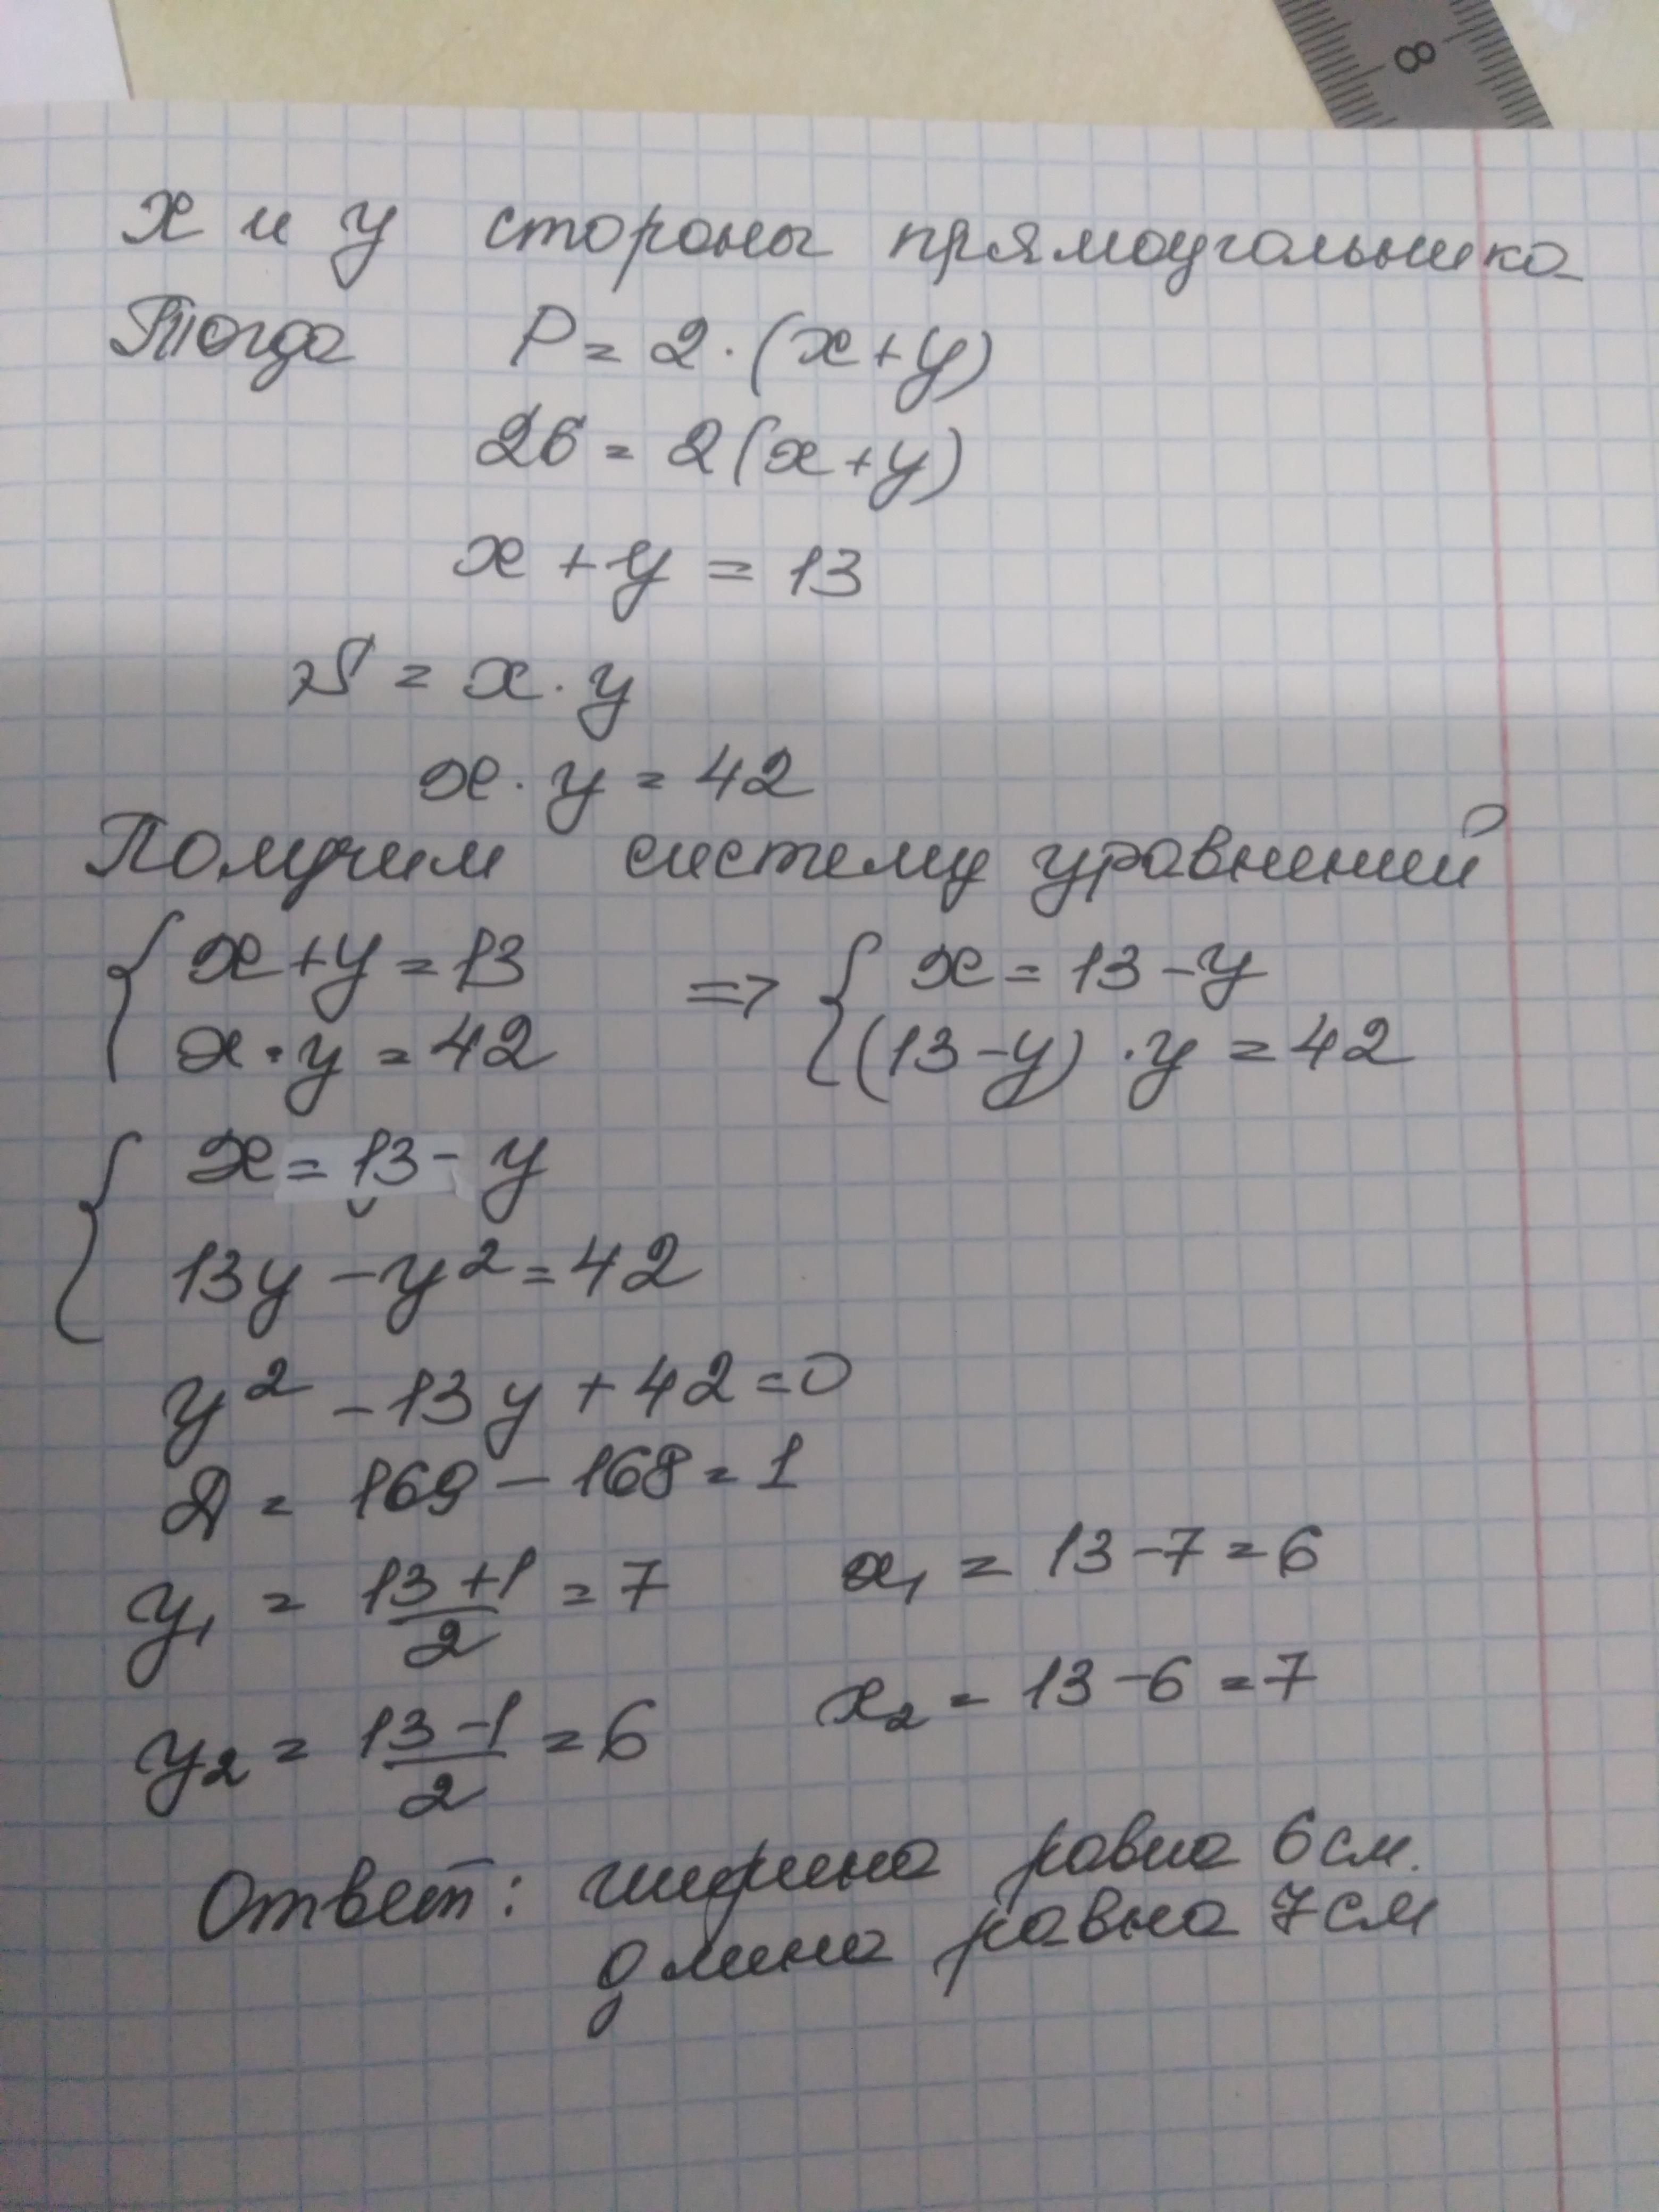 8
x и y стороны прямоугольника
Тогда P = 2 · (x + y)
26 = 2(x + y)
x + y = 13
S = x · y
x · y = 42
Получим систему уравнений
{ x + y = 13 => { x = 13 - y
x · y = 42 (13 - y) · y = 42
{ x = 13 - y
13y - y² = 42
y² - 13y + 42 = 0
D = 169 - 168 = 1
y₁ = (13 + 1)/2 = 7 x₁ = 13 - 7 = 6
y₂ = (13 - 1)/2 = 6 x₂ = 13 - 6 = 7
Ответ: ширина равна 6 см.
длина равна 7 см